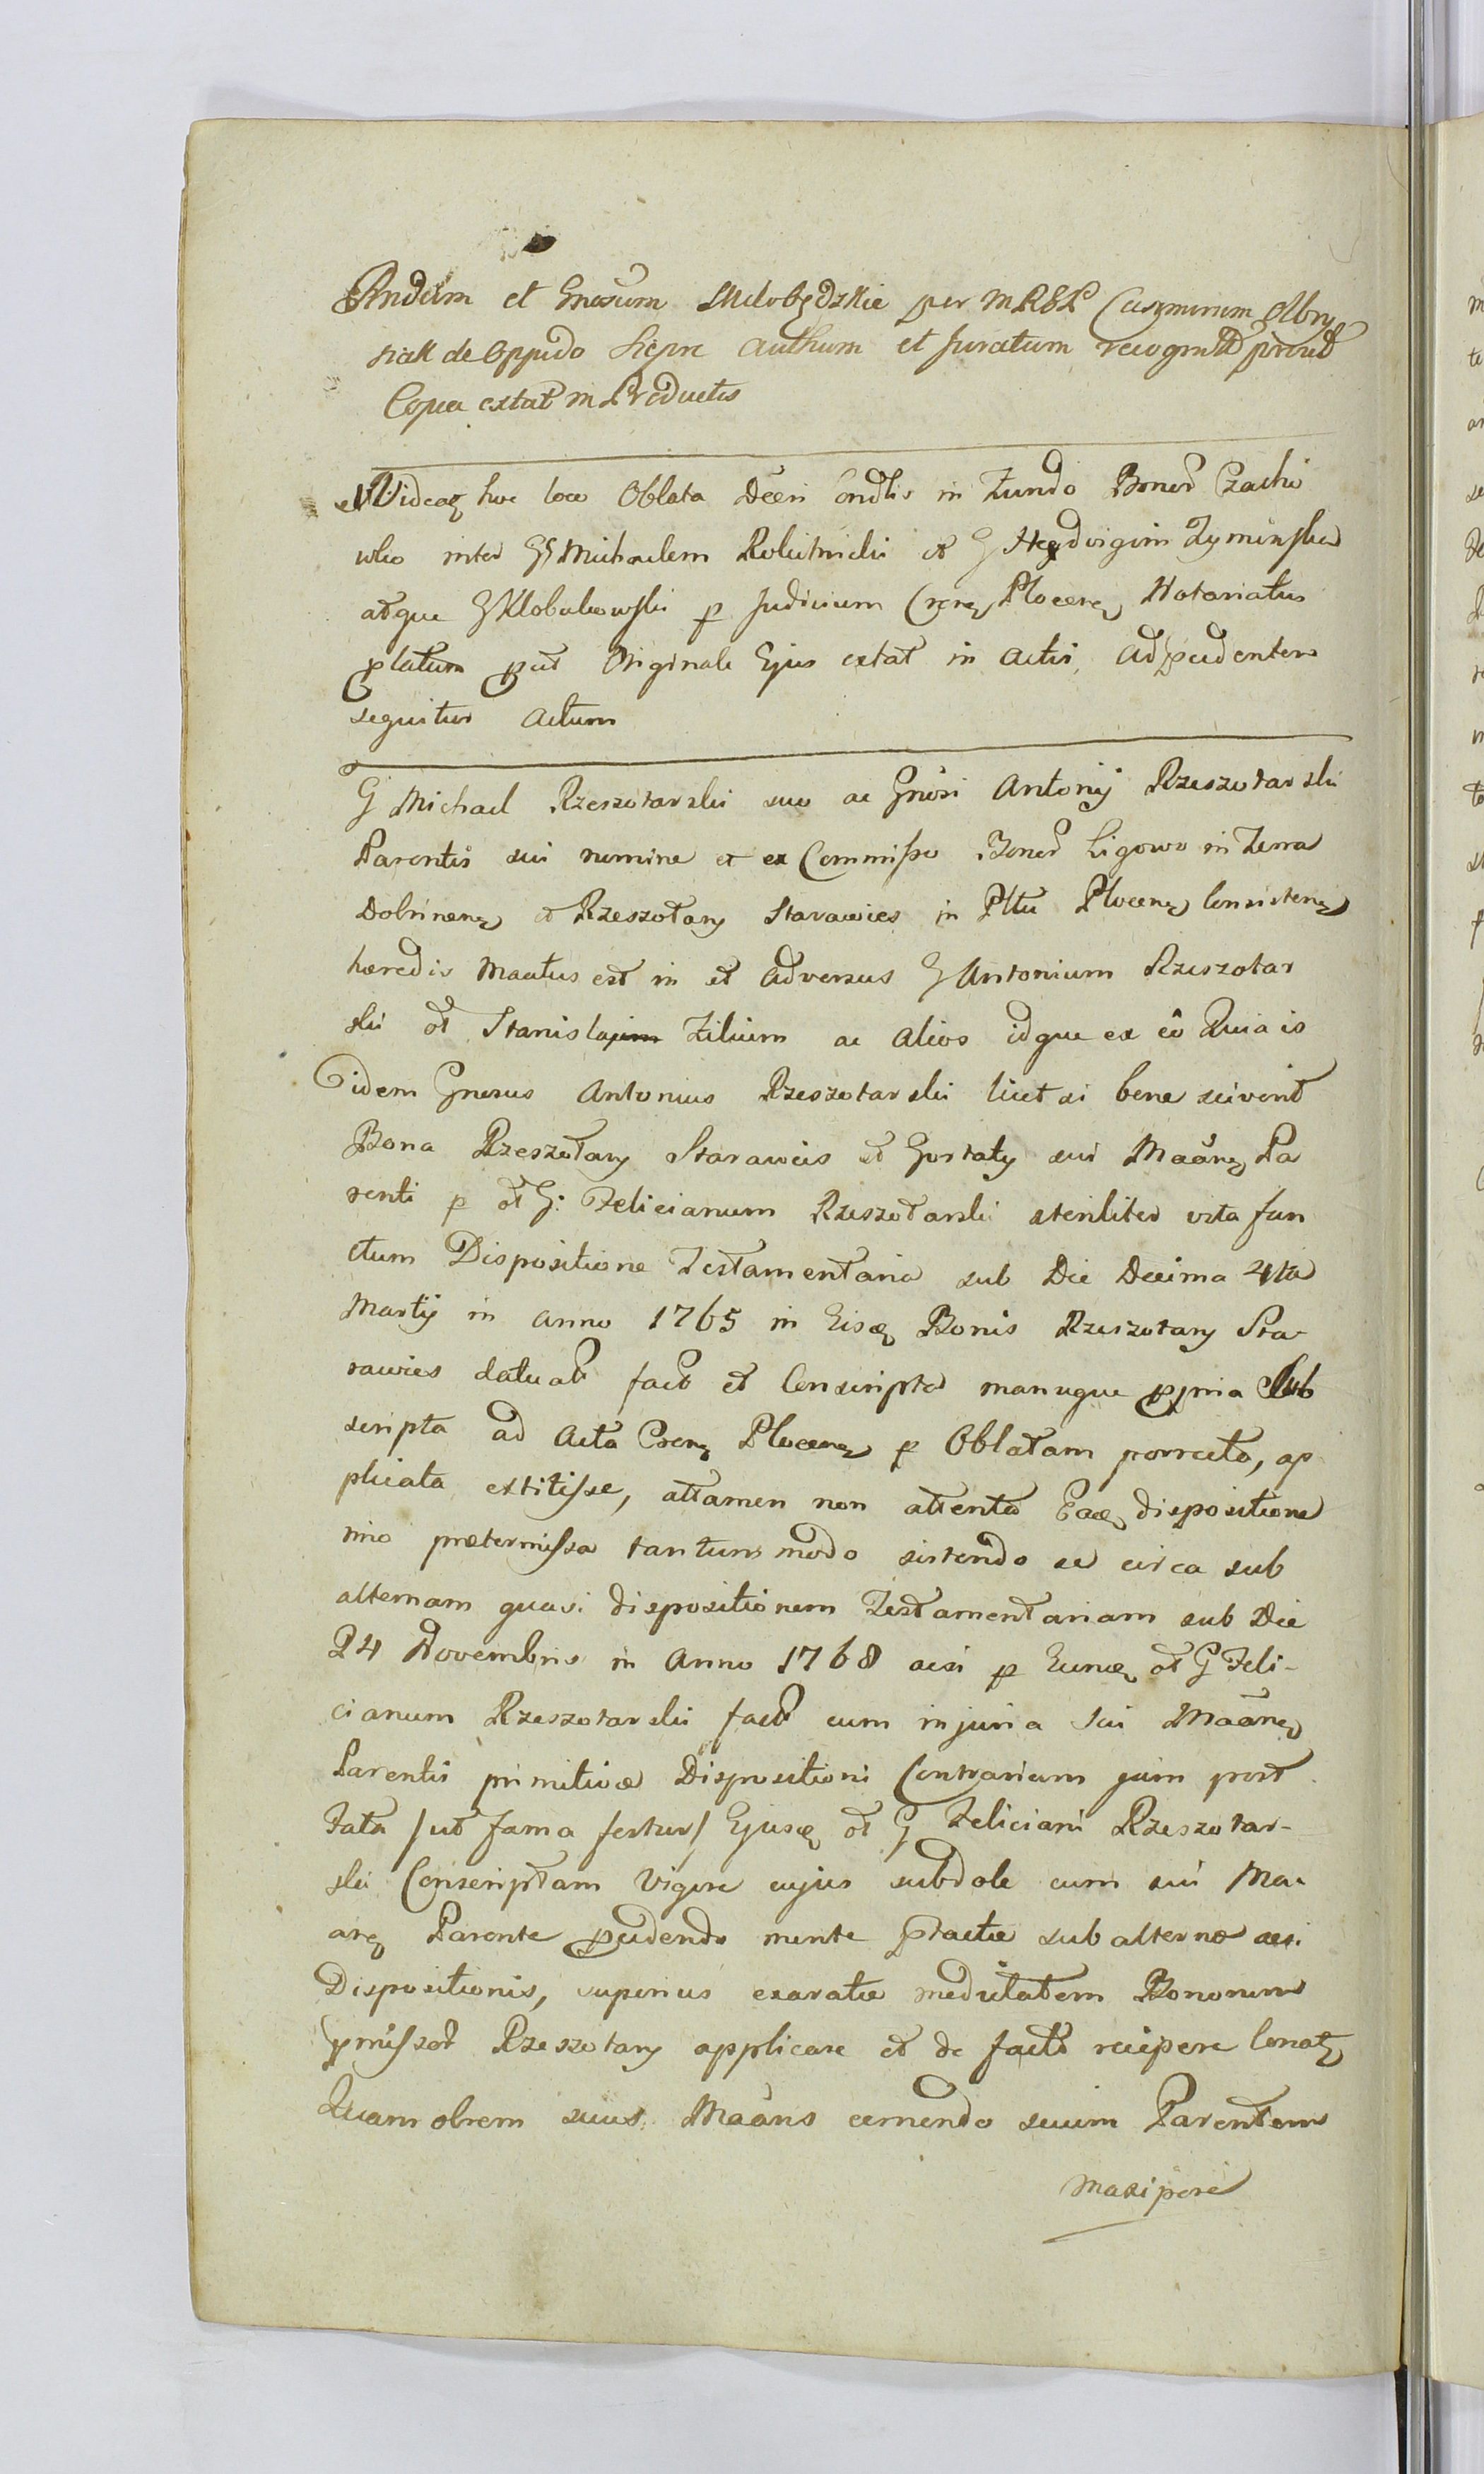 et Gnosum Miłobędzkie per MRSP Casymirum Olbry
siak de Oppido Siepre Authum et Juratum recognitt prout
Copia extat in Productis
Videaq hoc loco Oblata Dècri Condlis in Fundo Bonor Czachó
wko inter GG Michaelem Rokitnicki et G Hegdvigim Zyminska
atque G Klobukowski p Judicium Crens Plocens Notariatus
platum put Originale Ejus extat in Actis, Adpcudenter
sequitur Actum
G Michael Rzeszotarski suo ac Gnosi Antonij Rzeszotarski
Parentis sui nomine et ex Commisso Bonor Ligowo in Terra
Dobrinens et Rzeszotary Starawies in Pttu Plocens Consistens
hæredis Maatus est in et Adversus G Antonium Rzeszotar
ski ot Stanislai Filium ac Alios idque ex eô Quia is
idem Gnosus Antonius Rzeszotarski licet si bene sciverit
Bona Rzeszotary Starawies et Gortaty sui Maãns Pa
renti p ot G: Felicianum Rzeszotarski steriliter vita fun
ctum Dispositione Testamentaria sub Die Decima 4ta
Martij in Anno 1765 in Eisq Bonis Rzeszotary Sta-
rawies datuat fact et Conscripta manuque ppria Sub
scripta ad Acta Crens Plocens p Oblatam porrecta, ap
plicata extitisse, attamen non attenta Eaq dispositione
imo prætermissa tantum modo sistendo se circa sub
alternam quasi dispositionem Testamentariam sub Die
24 Novembris in Anno 1768 acsi p Eunq ot G Feli-
cianum Rzeszotarski fact cum injuria sui Maãns
Parentis primitivæ Dispositioni Contrarium jam post
Fata /ut fama fertur/ Ejusq ot G Feliciani Rzeszotar-
ski Conscriptam Vigore cujus subdole cum sui Ma-
ans Parente pcudendo mente ptactæ subalternæ acsi
Dispositionis, superius exaratæ medietatem Bonorum
pmissor Rzeszotary applicare et de facto recipere Conatq
Quam obrem suus Maãns cernendo suum Parentem